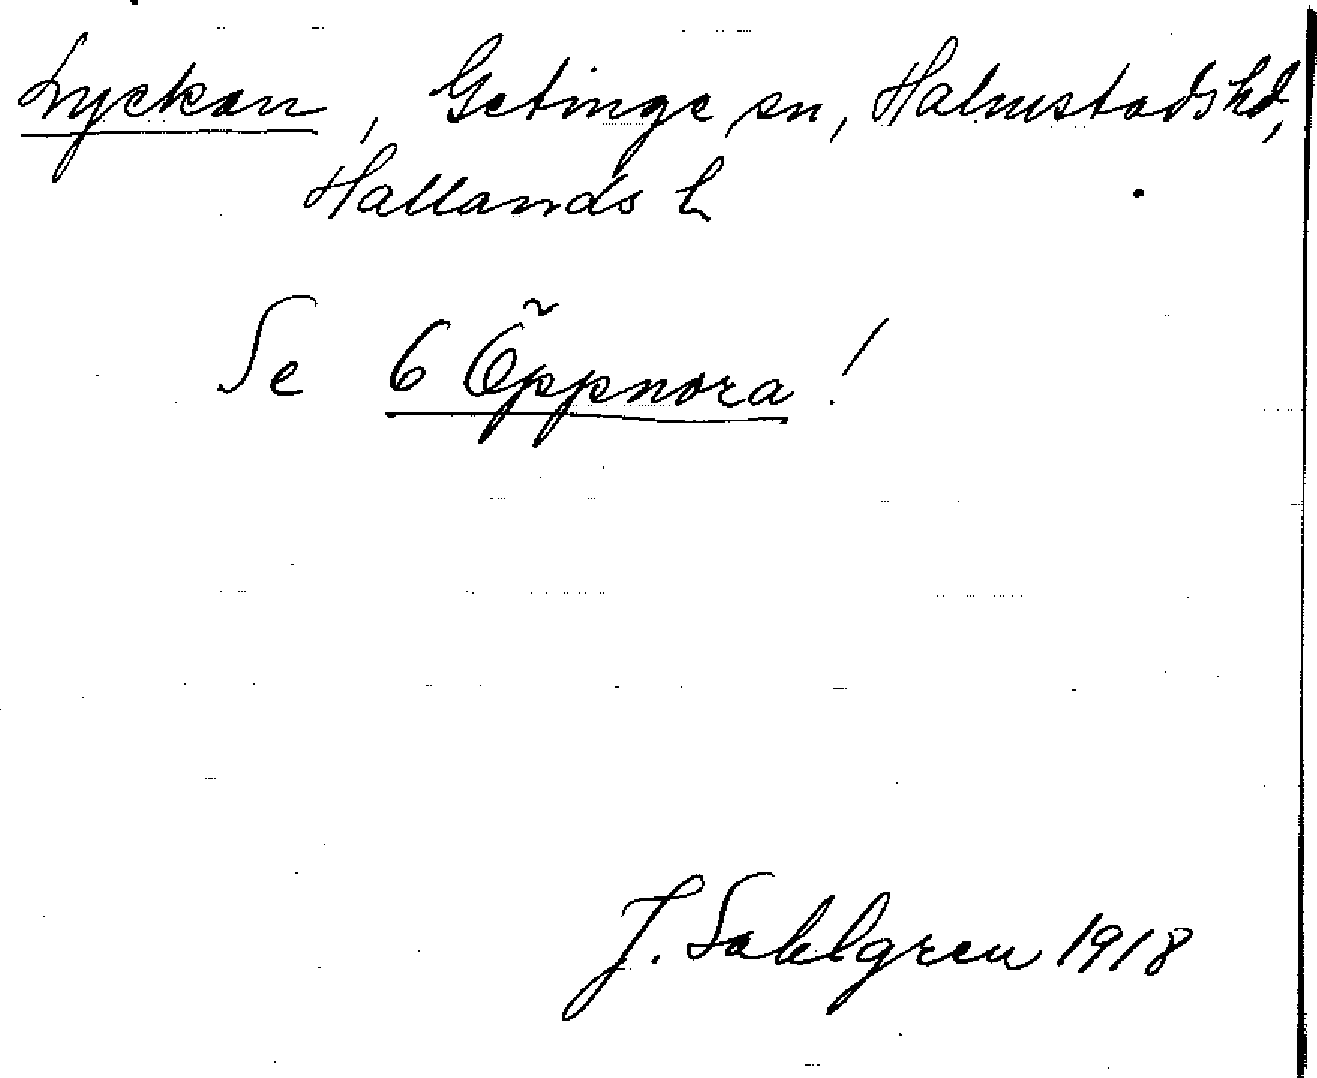 Lyckan, Getinge sn, Halmstads hd,
Hallands l.
Se 6 Öppnora!
J. Sahlgren 1918